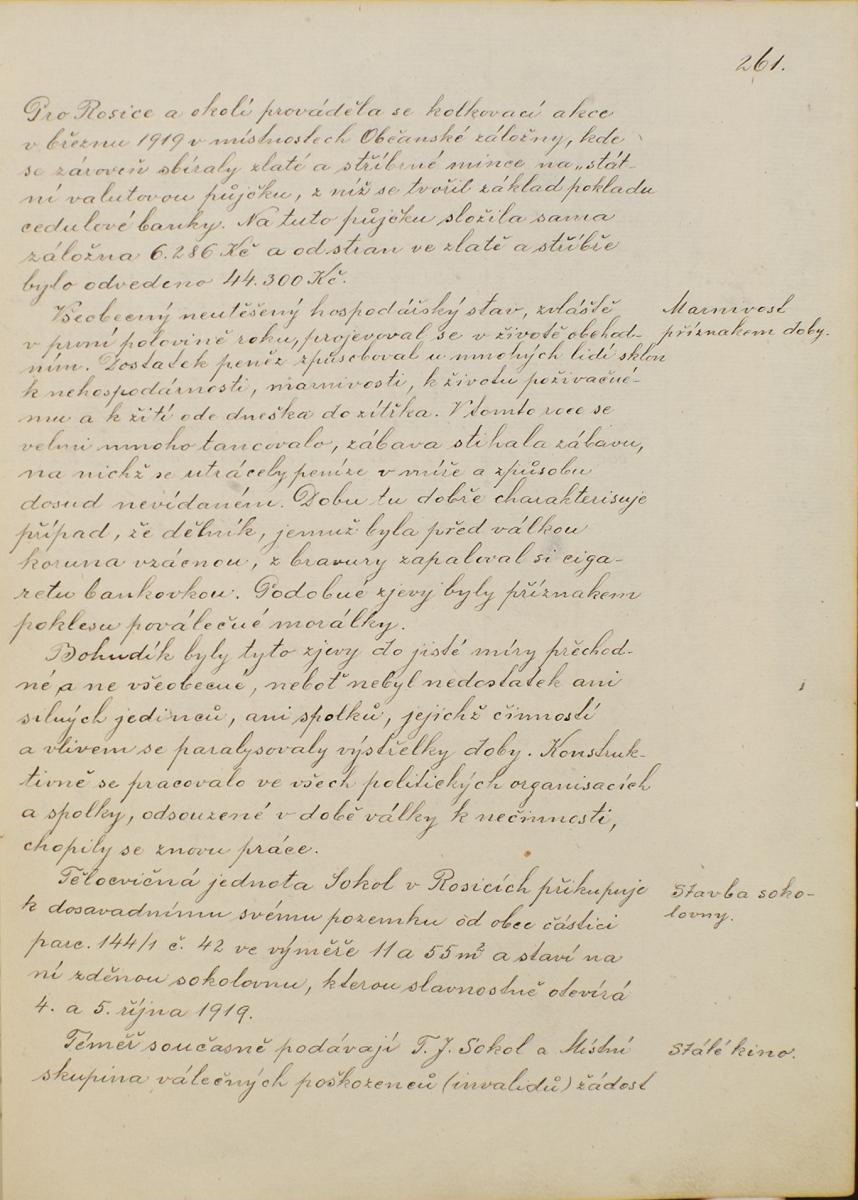 261.
Pro Rosice a okolí prováděla se kolkovací akce
v březnu 1919 v místnostech Občanské záložny, kde
se zároveň sbíraly zlaté a stříbrné mince na „stát-
ní valutovou půjčku, z níž se tvořil základ pokladu
cedulové banky. Na tuto půjčku složila sama
záložna 6.286 Kč a od stran ve zlatě a stříbře
bylo odvedeno 44.300 Kč.
Všeobecný neutěšený hospodářský stav, zvláště
v první polovině roku, projevoval se v životě obchod-
ním. Dostatek peněz způsoboval u mnohých lidí sklon
k nehospodárnosti, marnivosti, k životu poživačné-
mu a k žití ode dneška do zítřka. V tomto roce se
velmi mnoho tancovalo, zábava stihala zábavu,
na nichž se utrácely peníze v míře a způsobu
dosud nevídaném. Dobu tu dobře charakterisuje
případ, že dělník, jemuž byla před válkou
koruna vzácnou, z bravury zapaloval si ciga-
retu bankovkou. Podobné zjevy byly příznakem
poklesu poválečné morálky.
Marnivost
příznakem doby.
Bohudík byly tyto zjevy do jisté míry přechod-
né a ne všeobecné, neboť nebyl nedostatek ani
silných jedinců, ani spolků, jejichž činností
a vlivem se paralysovaly výstřelky doby. Konstruk-
tivně se pracovalo ve všech politických organisacích
a spolky, odsouzené v době války k nečinnosti,
chopily se znovu práce.
Tělocvičná jednota Sokol v Rosicích přikupuje
k dosavadnímu svému pozemku od obce částici
parc. 144/1 č. 42 ve výměře 11 a 55 m² a staví na
ní zděnou sokolovnu, kterou slavnostně otevírá
4. a 5. října 1919.
Stavba soko-
lovny.
Téměř současně podávají T. J. Sokol a Místní
skupina válečných poškozenců (invalidů) žádost
Stálé kino.